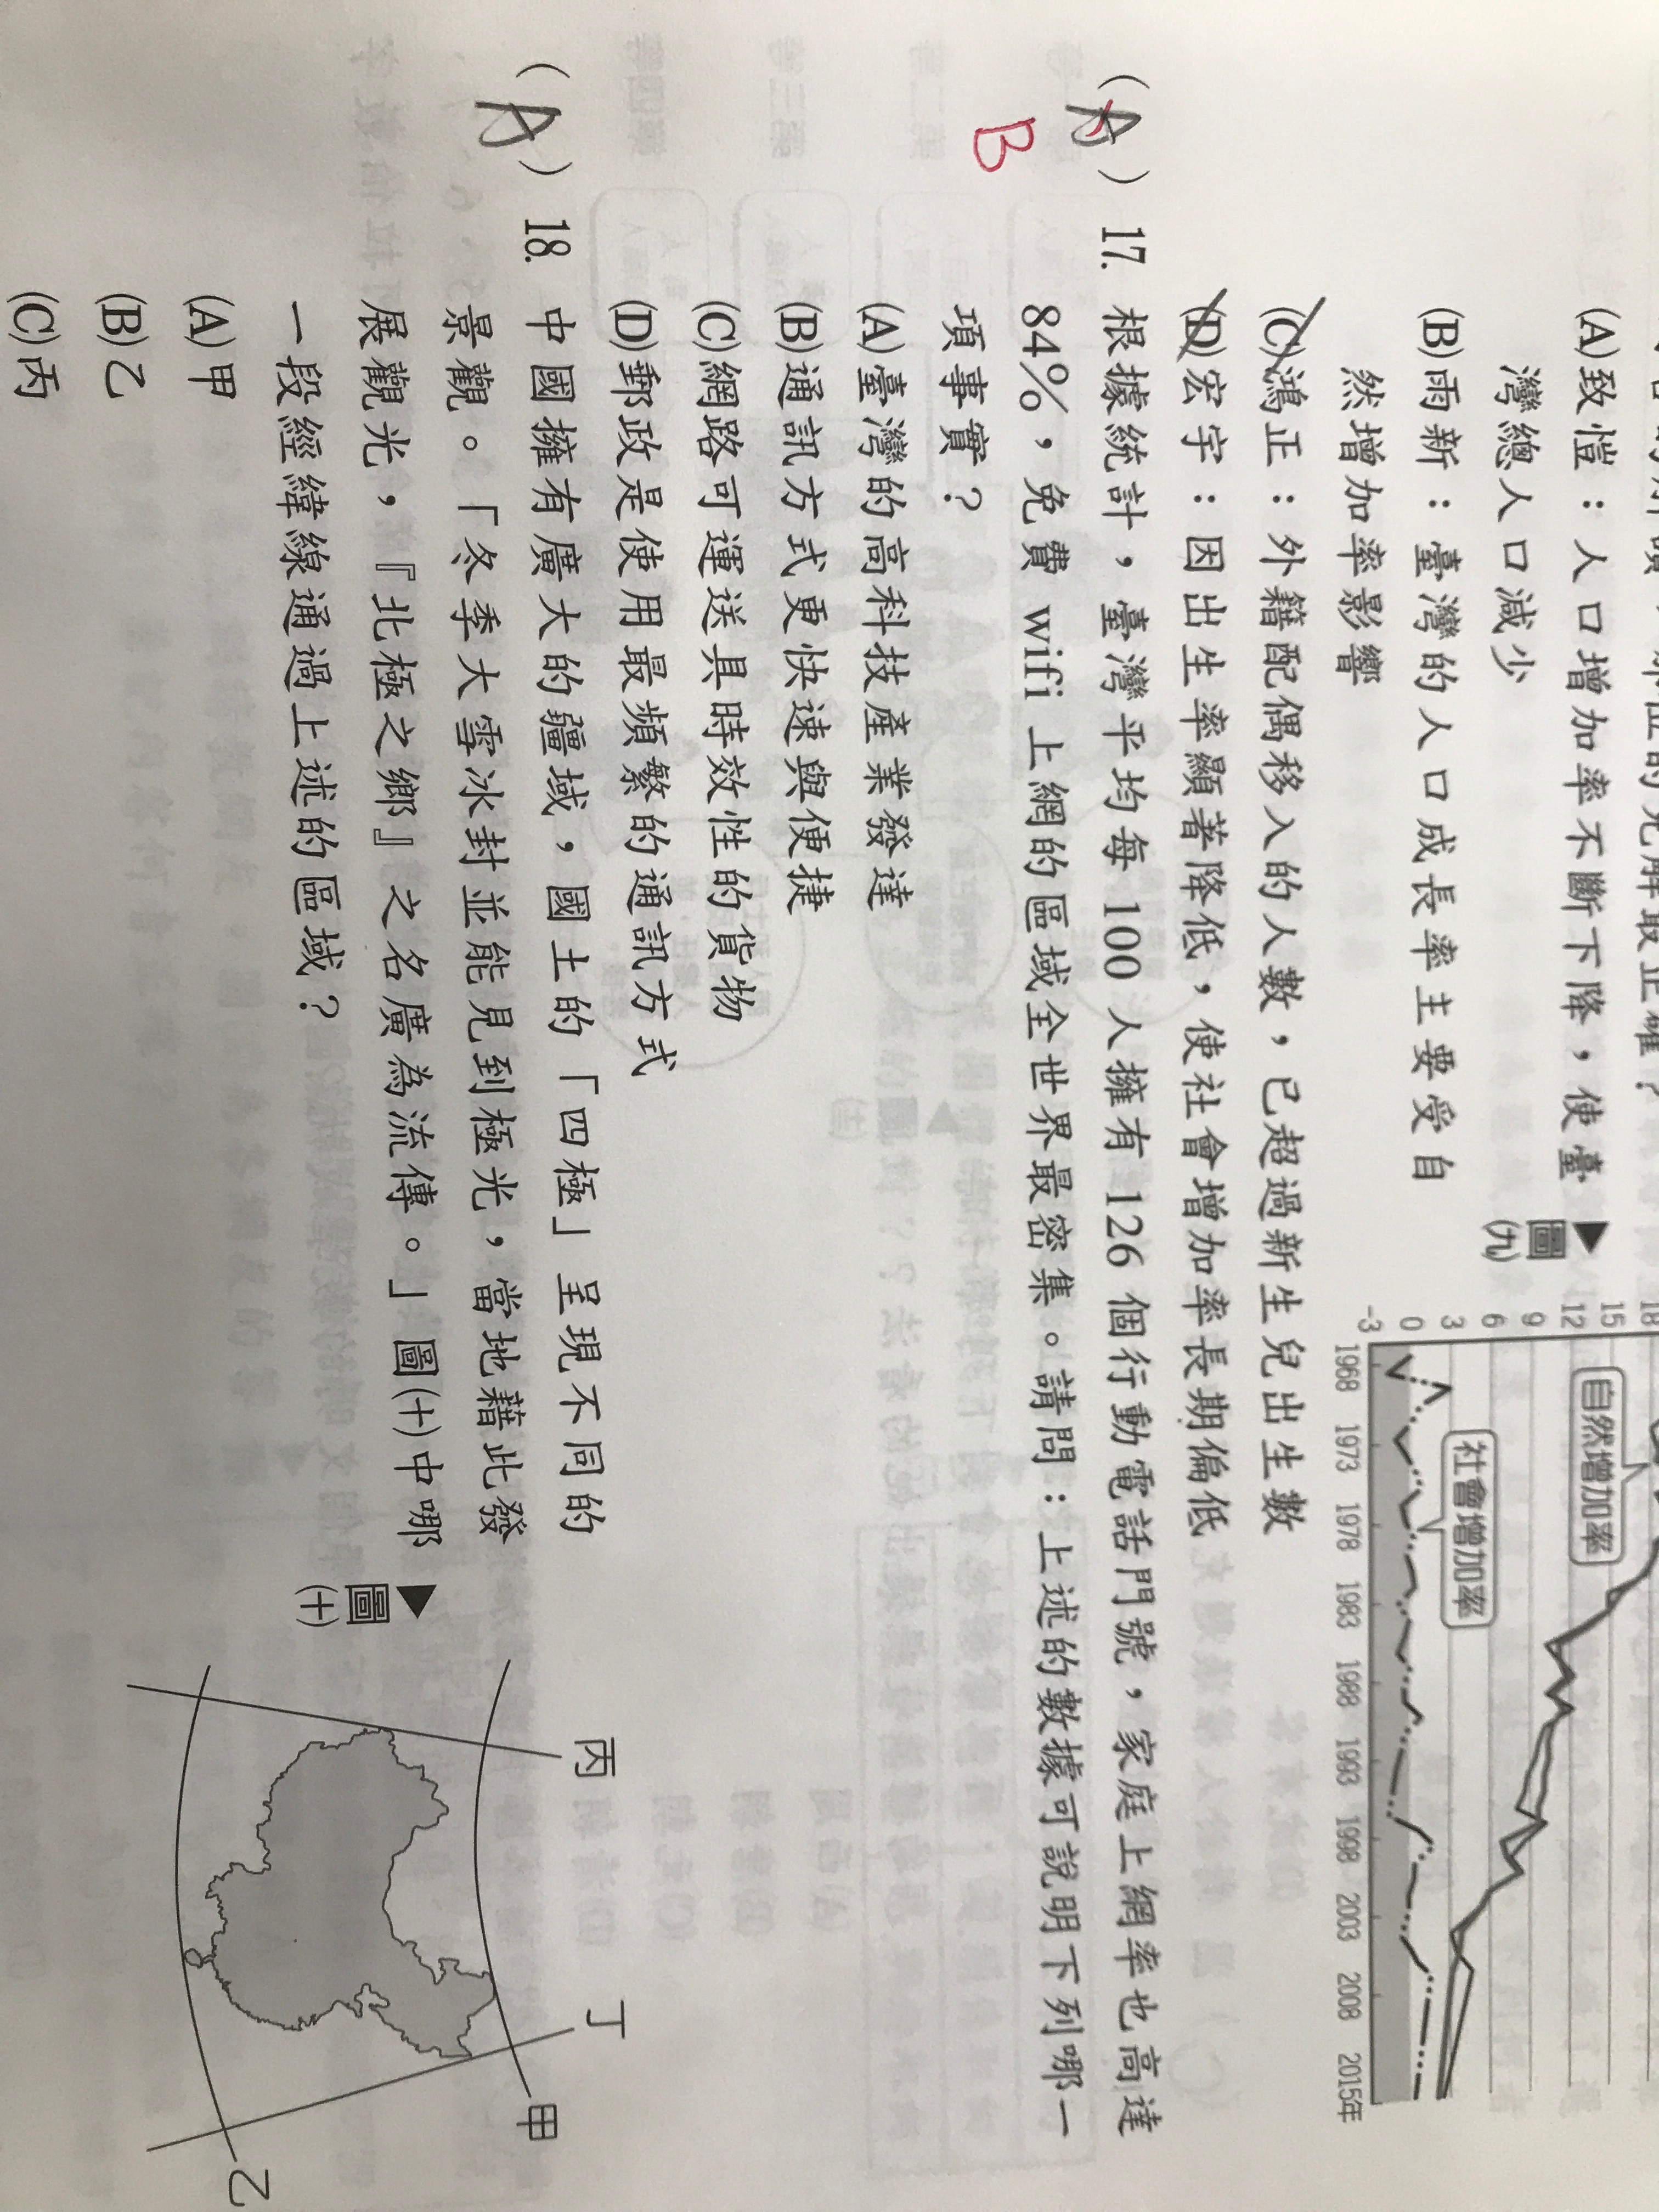 (A)致愷：人口增加率不斷下降，使臺
灣總人口減少
(B)雨新：臺灣的人口成長率主要受自
然增加率影響
(C)鴻正：外籍配偶移入的人數，已超過新生兒出生數
(D)宏宇：因出生率顯著降低，使社會增加率長期偏低
▲圖(九)
18
15
12
9
6
3
0
-3
自然增加率
社會增加率
1968 1973 1978 1983 1988 1993 1998 2003 2008 2015年
(A) 17. 根據統計，臺灣平均每 100 人擁有 126 個行動電話門號，家庭上網率也高達
B
84%，免費 wifi 上網的區域全世界最密集。請問：上述的數據可說明下列哪一
項事實？
(A)臺灣的高科技產業發達
(B)通訊方式更快速與便捷
(C)網路可運送具時效性的貨物
(D)郵政是使用最頻繁的通訊方式
(A) 18. 中國擁有廣大的疆域，國土的「四極」呈現不同的
景觀。「冬季大雪冰封並能見到極光，當地藉此發
展觀光，『北極之鄉』之名廣為流傳。」圖(十)中哪
一段經緯線通過上述的區域？
(A)甲
(B)乙
(C)丙
▲圖(十)
丙
丁
甲
乙